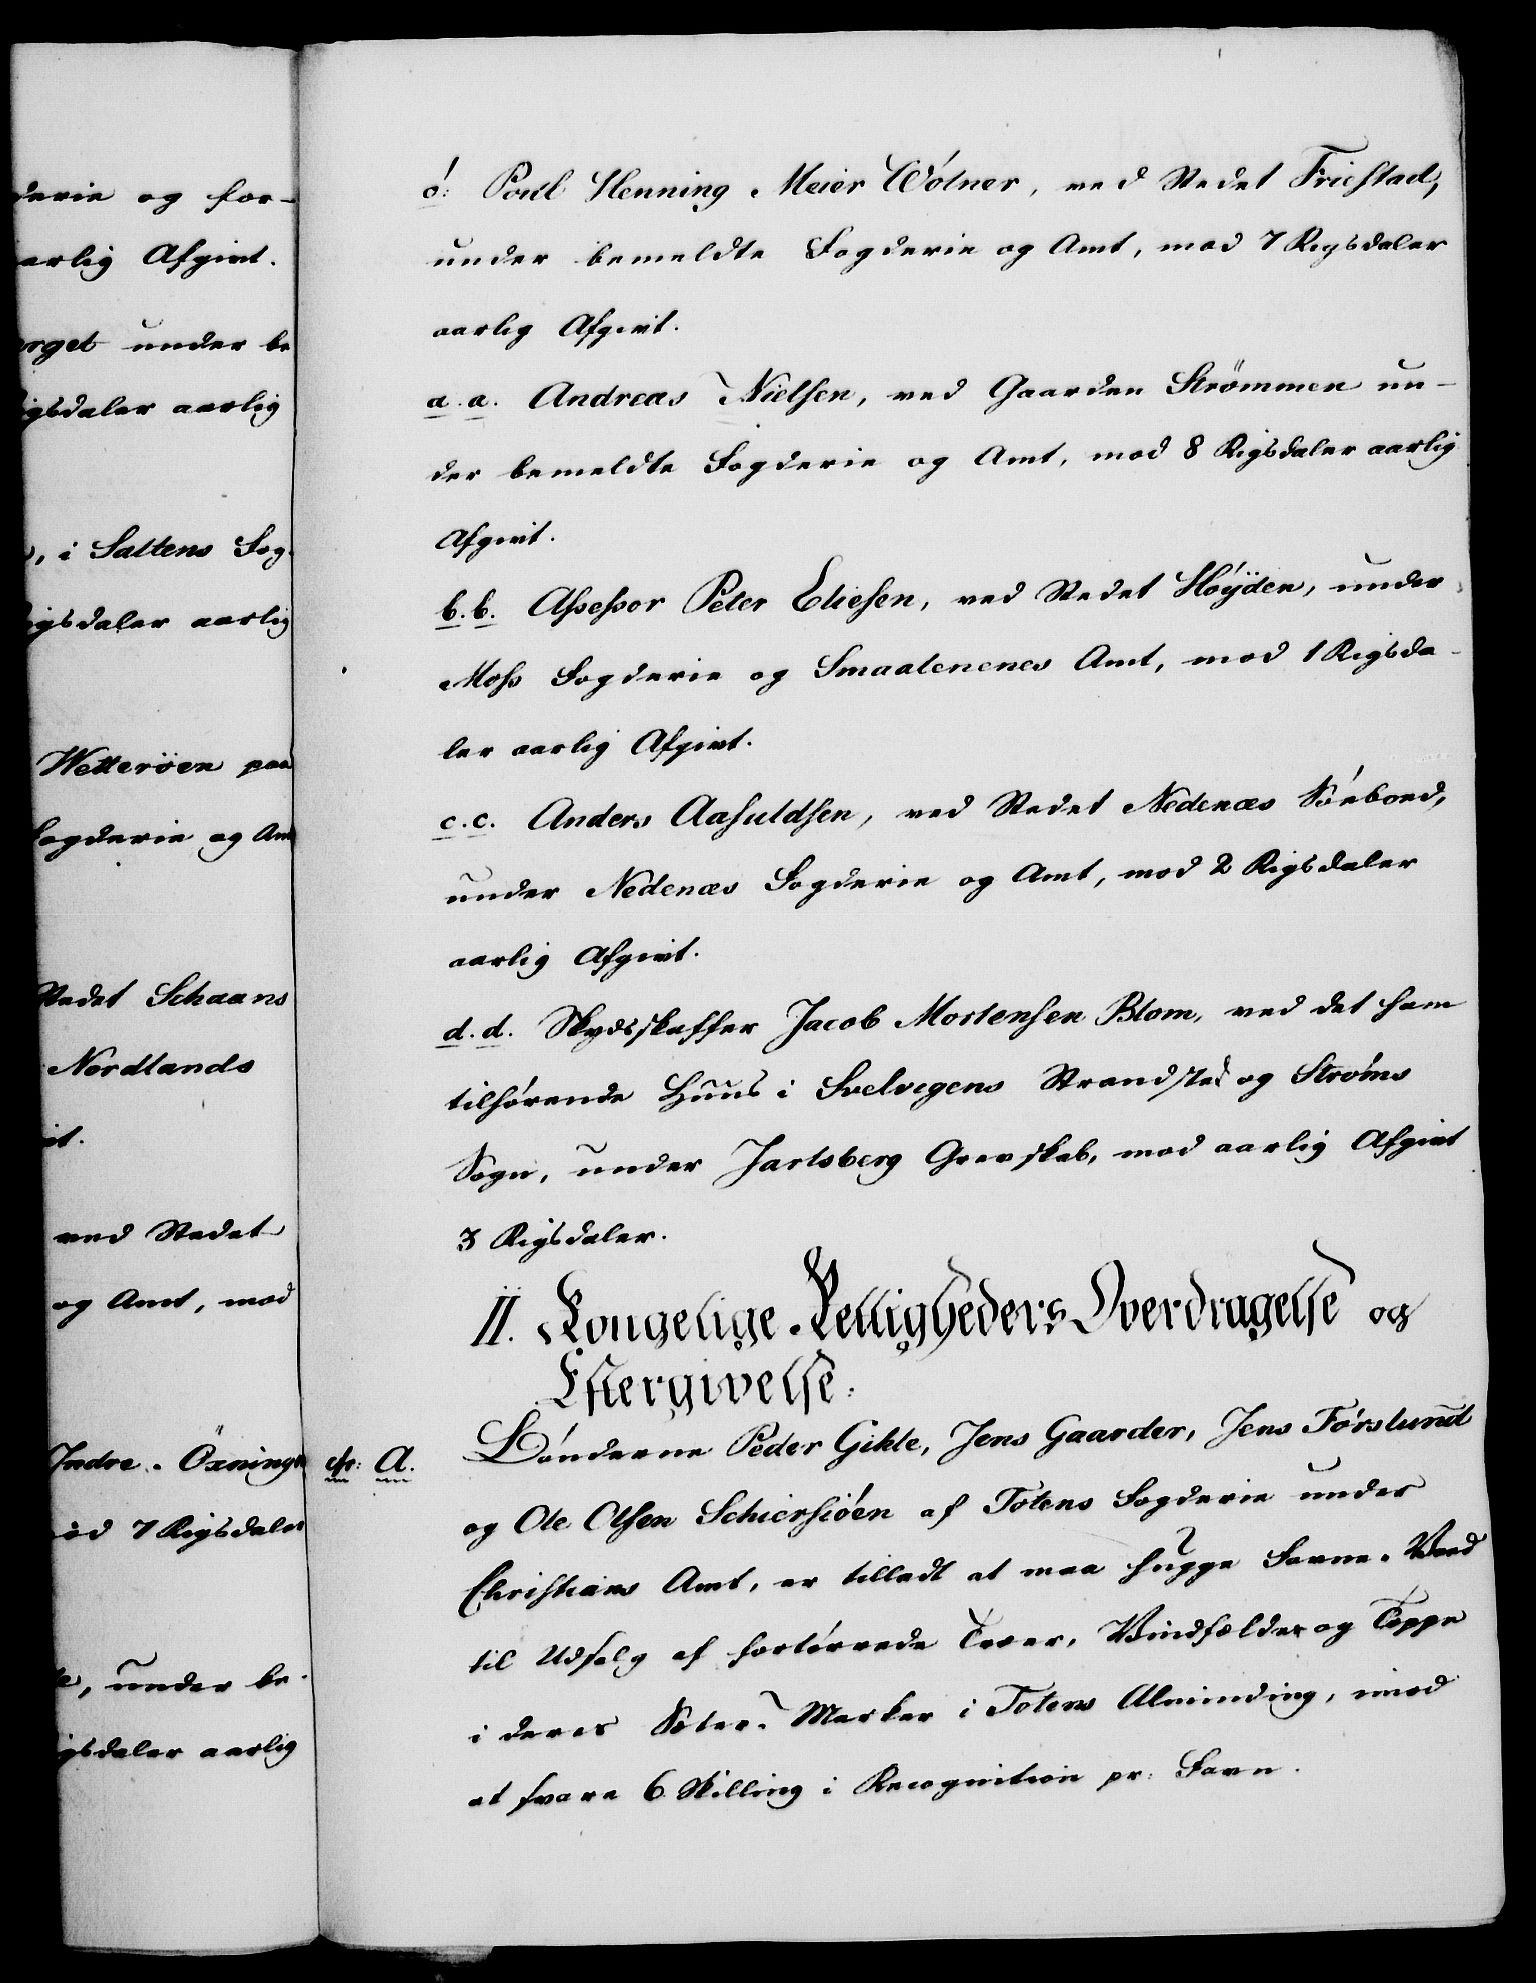 derie og for-
aarlig Afgivt.
erget under be
igsdaler aarlig
, i Saltens Fog-
igsdaler aarlig
Wetterøen paa
Fogderie og Amt
Stedet Schaans
Nordlands
ved Stedet
og Amt, mod
Indre-Öxning
mod 7 Rigsdaler
, under be-
igsdaler aarlig
ó: Poul Henning Meier Wólner, ved Stedet Friestad,
under bemeldte Fogderie og Amt, mod 7 Rigsdaler
aarlig Afgivt.
a.a. Andreas Nielsen, ved Gaarden Strömmen un-
der bemeldte Fogderie og Amt, mod 8 Rigsdaler aarlig
Afgivt.
b.b. Assessor Peter Eliesen, ved Stedet Höÿden, under
Moss Fogderie og Smaalenenes Amt, mod 1 Rigsda-
ler aarlig Afgivt.
c.c. Anders Aasuldsen, ved Stedet Nedenæs Sóeboed,
under Nedenæs Fogderie og Amt, mod 2 Rigsdaler
aarlig Afgivt.
d.d. Skydsskaffer Jacob Mortensen Blom, ved det ham
tilhørende Huus i Svelvigens Strandsted og Strøms
Sogn, under Jarlsberg Grevskab, mod aarlig Afgivt
3 Rigsdaler.
II. Kongelige Rettigheders Overdragelse og
Eftergivelse.
cfr: A. Bønderne Peder Gihle, Jens Gaarder, Jens Fórslund
og Ole Olsen Schiersiöen af Totens Fogderie under
Christians Amt, er tilladt at maa hugge Favne-Veed
til Udsalg af fortørrede Træer, Vindfælder og Toppe
i deres Sæter-Marker i Totens Alminding, imod
at svare 6 Skilling i Recognition pr: Favn.